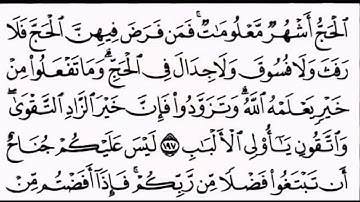 ٱلۡحَجُّ أَشۡهُرٞ مَّعۡلُومَٰتٞۚ فَمَن فَرَضَ فِيهِنَّ ٱلۡحَجَّ فَلَا
رَفَثَ وَلَا فُسُوقَ وَلَا جِدَالَ فِي ٱلۡحَجِّۗ وَمَا تَفۡعَلُواْ مِنۡ
خَيۡرٖ يَعۡلَمۡهُ ٱللَّهُۗ وَتَزَوَّدُواْ فَإِنَّ خَيۡرَ ٱلزَّادِ ٱلتَّقۡوَىٰۖ
وَٱتَّقُونِ يَٰٓأُوْلِي ٱلۡأَلۡبَٰبِ ١٩٧ لَيۡسَ عَلَيۡكُمۡ جُنَاحٌ
أَن تَبۡتَغُواْ فَضۡلٗا مِّن رَّبِّكُمۡۚ فَإِذَآ أَفَضۡتُم مِّنۡ